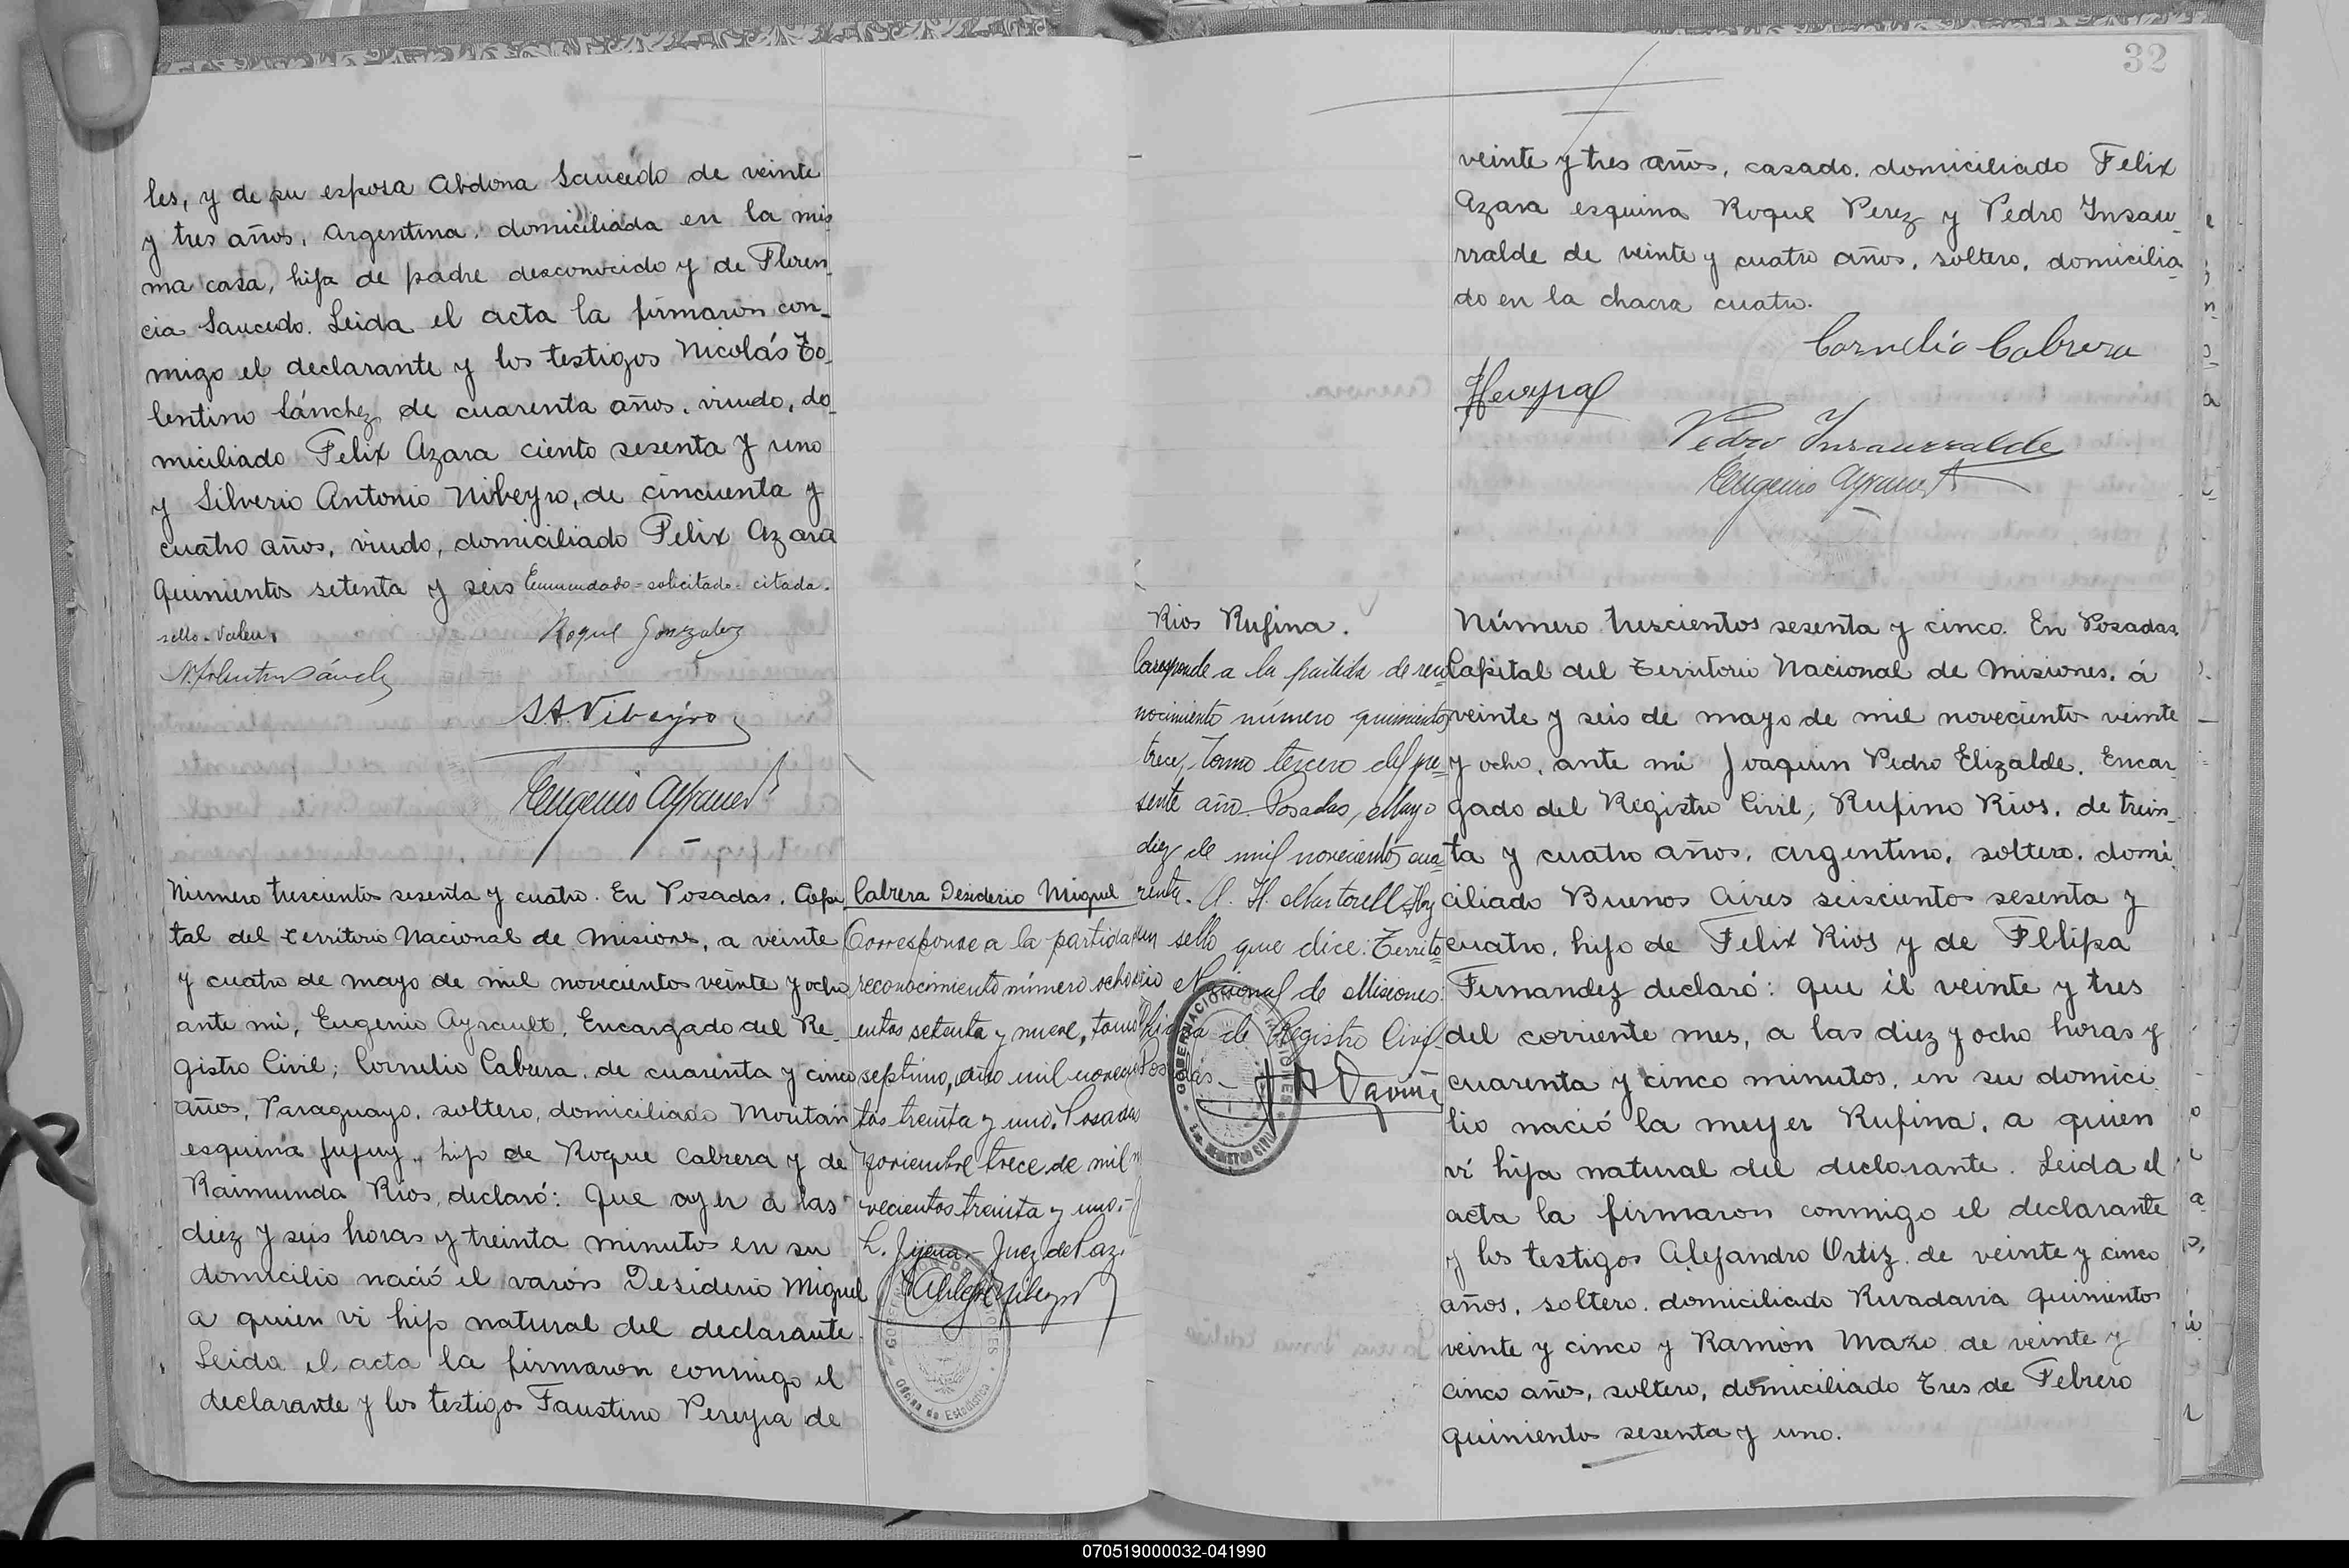 les, y de su esposa Abdona Saucedo de veinte
y tres años, Argentina, domiciliada en la mis
ma casa, hija de padre desconocido y de Floren
cia Saucedo. Leida el acta la firmaron con-
migo el declarante y los testigos Nicolás To-
lentino Sánchez de cuarenta años, viudo, do-
miciliado Felix Azara ciento sesenta y uno
y Silverio Antonio Nibeyro, de cincuenta y
cuatro años, viudo, domiciliado Felix Azara
quinientos setenta y seis Enmendado=solicitado=citada.
sello. Valen.
Roque Gonzalez
N. Tolentino Sánchez
S.A. Nibeyro
Eugenio Ayrault
Número trescientos sesenta y cuatro. En Posadas, Capi
tal del Territorio Nacional de Misiones, a veinte
y cuatro de mayo de mil novecientos veinte y ocho
ante mi, Eugenio Ayrault, Encargado del Re-
gistro Civil; Cornelio Cabrera, de cuarenta y cinco
años, Paraguayo, soltero, domiciliado Moutan
esquina Jujuy, hijo de Roque Cabrera y de
Raimunda Rios, declaró: Que ayer a las
diez y seis horas y treinta minutos en su
domicilio nació el varón Desiderio Miguel
a quien vi hijo natural del declarante.
Leida el acta la firmaron conmigo el
declarante y los testigos Faustino Pereyra de
Cabrera Desiderio Miguel
Corresponde a la partida
reconocimiento número ocho
entos setenta y nueve, tomo
septimo, año mil novecien
tos treinta y uno. Posadas
Noviembre trece de mil n
vecientos treinta y uno.-
L. Jijena.- Juez de Paz.
GOBERNACION DE MISIONES
Oficina de Estadistica
32
veinte y tres años, casado, domiciliado Felix
Azara esquina Roque Perez y Pedro Insau-
rralde de veinte y cuatro años, soltero, domicilia
do en la chacra cuatro.
Cornelio Cabrera
Pedro Insaurralde
Eugenio Ayrault
Rios Rufina.
Corresponde a la partida de reco
nocimiento número quinientos
trece, tomo tercero del pre=
sente año. Posadas, Mayo
diez de mil novecientos cua
renta. A. H. Martorell. Hay
un sello que dice: Territo=
rio Nacional de Misiones:
Oficina de Registro Civil-
Posadas-
GOBERNACION DE MISIONES
REGISTRO CIVIL
Número trescientos sesenta y cinco. En Posadas,
Capital del Territorio Nacional de Misiones, á
veinte y seis de mayo de mil noveciento veinte
y ocho, ante mi Joaquin Pedro Elizalde, Encar-
gado del Registro Civil; Rufino Rios, de trein-
ta y cuatro años, argentino, soltero, domi-
ciliado Buenos Aires seiscientos sesenta y
cuatro, hijo de Felix Rios y de Fllipa
Fernandez declaró: Que el veinte y tres
del corriente mes, a las diez y ocho horas y
cuarenta y cinco minutos, en su domici
lio nació la mujer Rufina, a quien
vi hija natural del declarante. Leida el
acta la firmaron conmigo el declarante
y los testigos Alejandro Ortiz de veinte y cinco
años, soltero, domiciliado Rivadavia quinientos
veinte y cinco y Ramón Mazo de veinte y
cinco años, soltero, domiciliado Tres de Febrero
quinientos sesenta y uno.
070519000032-041990